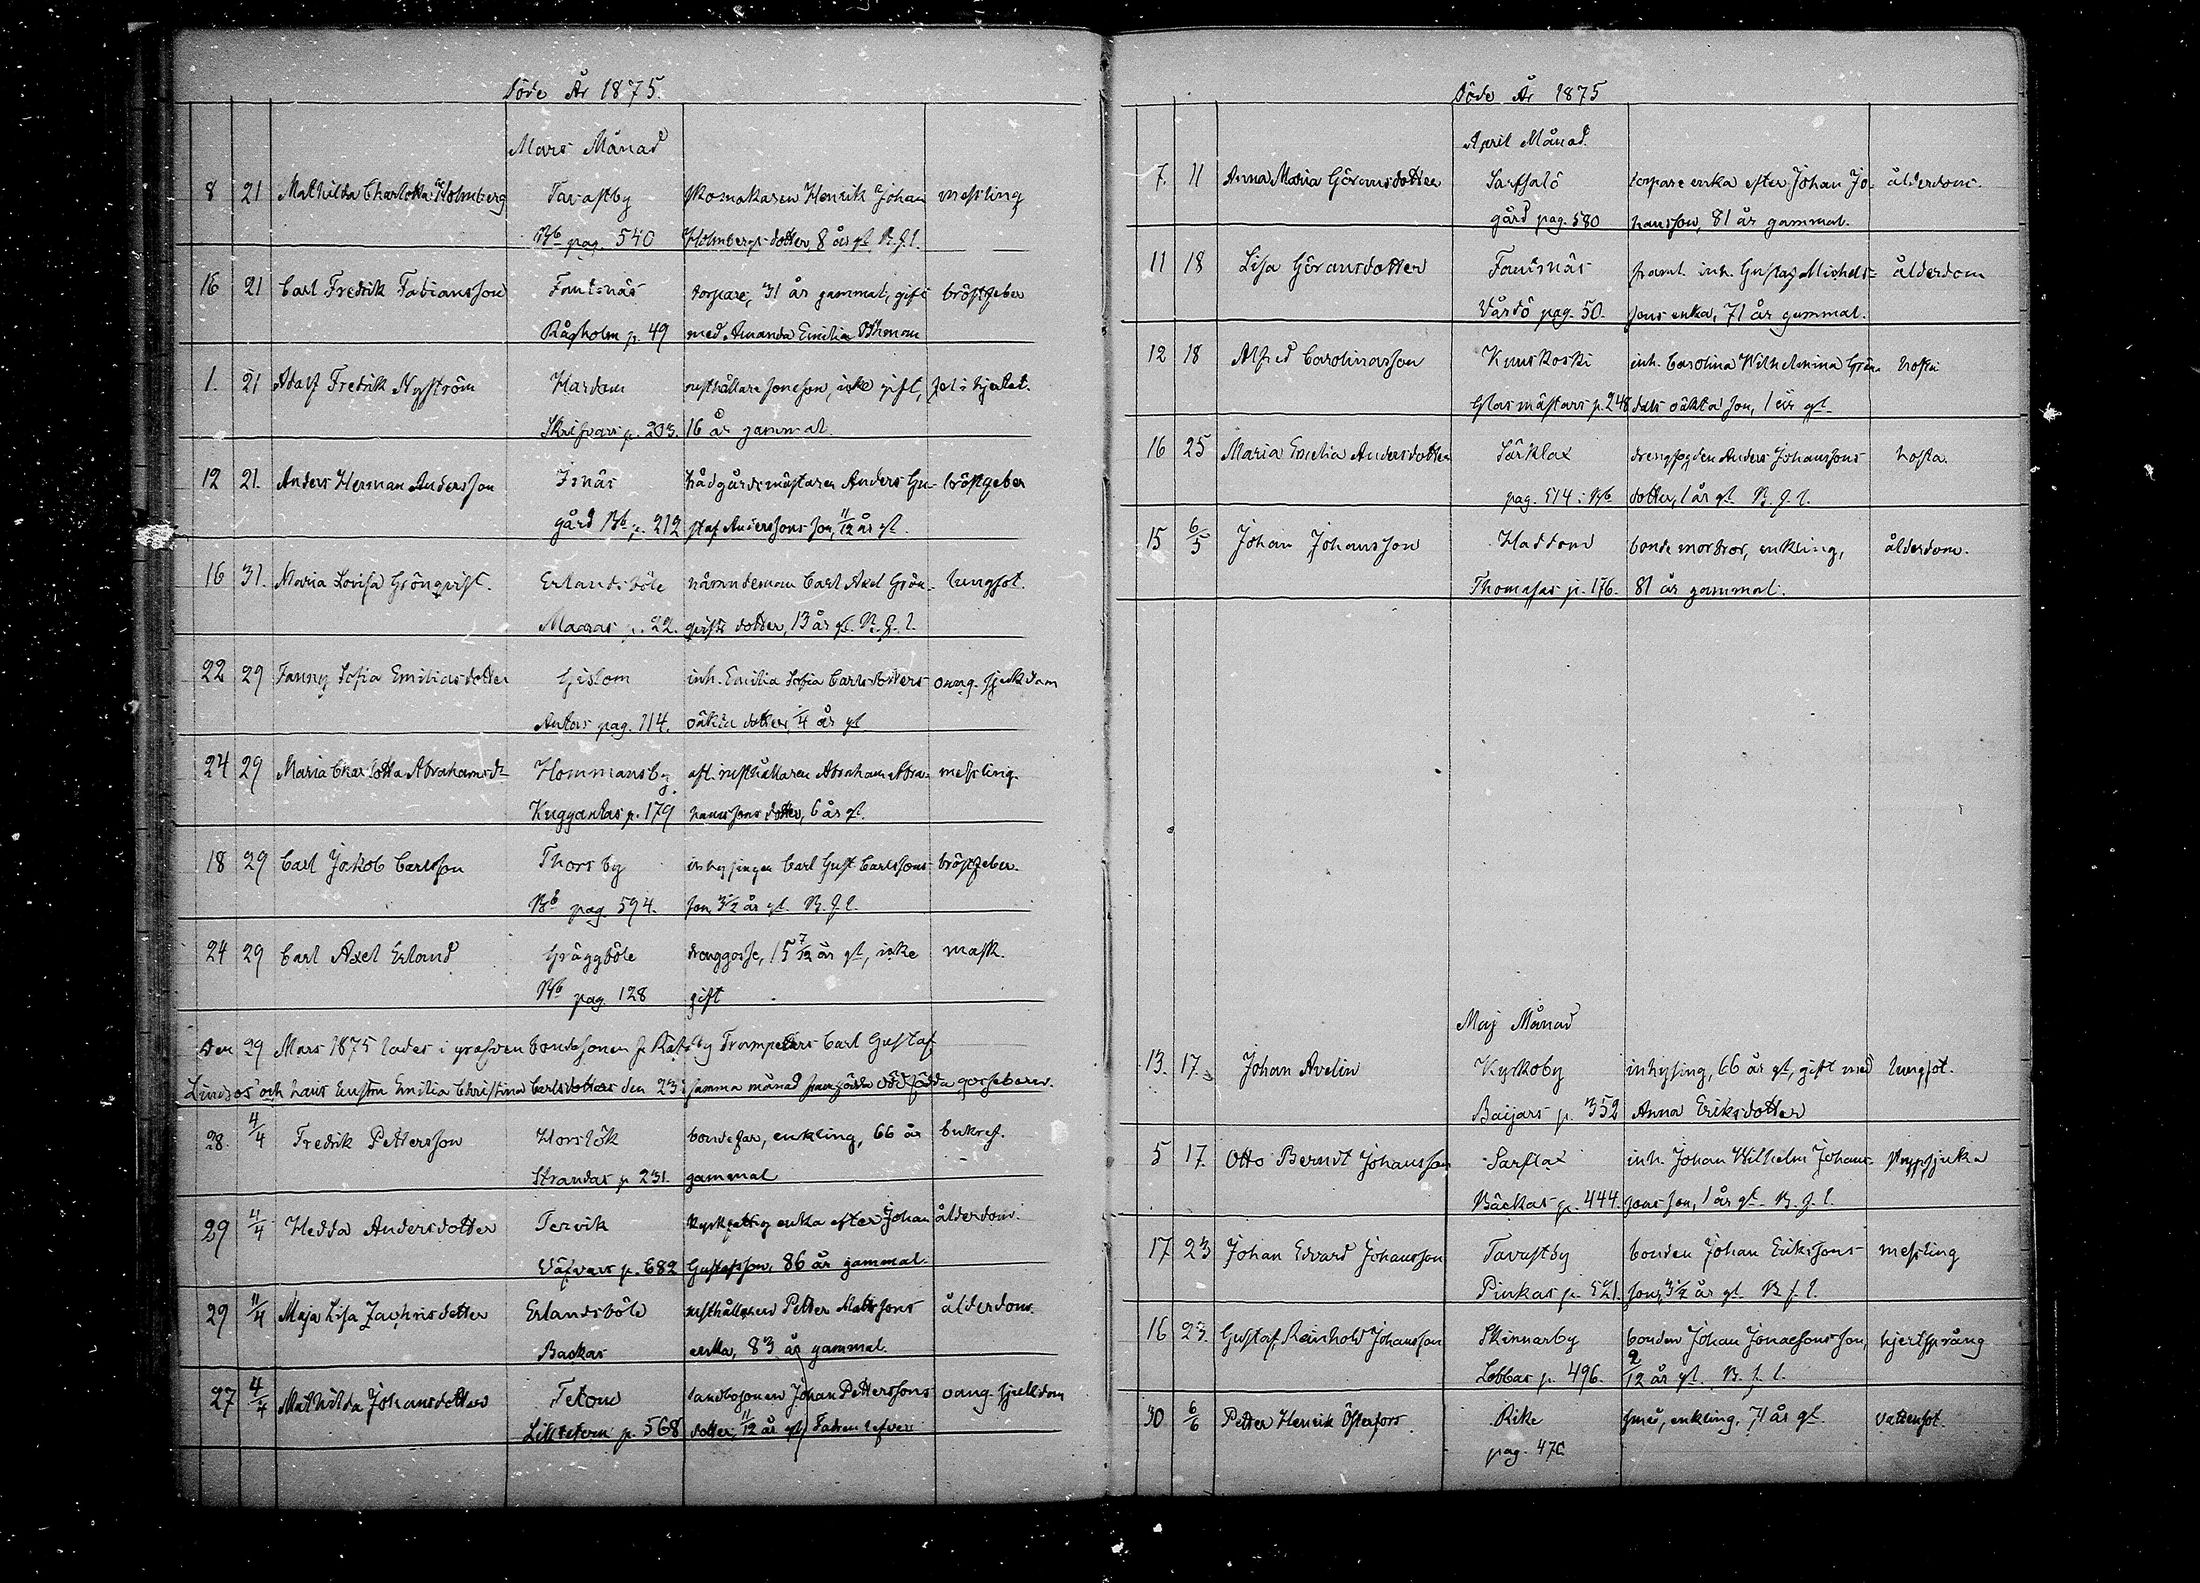 Döde År 1875.
Mars Månad
8 21 Mathilda Charlotta Holmberg Tavastby skomakaren Henrik Johan messling
Bb pag. 540 Holmbergs dotter, 8 år gl. B. f. l.
16 21 Carl Fredrik Fabiansson Fantsnäs torpare, 31 år gammal, gift bröstfeber
Rågholm p. 49 med Amanda Emilia Öhman
1. 21 Adolf Fredrik Nyström Hardom rusthållare soneson, icke gift, fel i hjertat.
Skrifvars p. 203. 16 år gammal.
12 21. Anders Herman Andersson Isnäs trädgårdsmästaren Anders Gu- bröstfeber
gård Bb p. 212 staf Anderssons son, 11/12 år gl.
16 31. Maria Lovisa Grönqvist. Erlandsböle nämndeman Carl Axel Grön- lungsot.
Maaras p. 22. qvists dotter, 13 år gl. B. f. l.
22 29 Fanny Sofia Emiliasdotter Gislom inh. Emilia Sofia Carlsdotters oang. sjukdom
Antas pag. 114. oäkta dotter, 1/4 år gl.
24 29 Maria Charlotta Abrahamsdr Hommansby afl. rusthållaren Abraham Abra- messling.
Kuggantas p. 179 hamssons dotter, 6 år gl.
18 29 Carl Jakob Carlsson Thorsby inhysingen Carl Gust. Carlssons bröstfeber.
Bb pag. 594. son, 3 1/2 år gl. B. f. l.
24 29 Carl Axel Erland Gräggböle dränggosse, 15 7/12 år gl, icke mask.
Bb pag. 128 gift
Den 29 Mars 1875 lades i grafven bondesonen fr Kätzby Trompetars Carl Gustaf
Lindros' och hans hustru Emilia Christina Carlsdotters den 23 i samma månad framfödda dödfödda gossebarn.
28. 4/4 Fredrik Pettersson Horslök bondefar, enkling, 66 år bukref.
Strandas p 231. gammal
29 4/4 Hedda Andersdotter Tervik kyrkfattig enka efter Johan ålderdom.
Väfvars p. 682 Gustafsson, 86 år gammal.
29 11/4 Maja Lisa Zachrisdotter Erlandsböle rusthållaren Petter Mattssons ålderdom.
Backas enka, 83 år gammal.
27 4/4 Mathilda Johansdotter Tetom landbosonen Johan Petterssons oang. sjukdom
Lilltetom p. 568 dotter, 11/12 år gl, Fadren lefver
Döde År 1875
April Månad.
7. 11 Anna Maria Göransdotter Sarfsalö torpare enka efter Johan Jo- ålderdom.
gård pag. 580 hansson, 81 år gammal.
11 18 Lisa Göransdotter Fantsnäs framl. inh. Gustaf Michels- ålderdom
Vårdö pag. 50. sons enka, 71 år gammal.
12 18 Alfred Carolinasson Kuuskoski inh. Carolina Wilhelmina Grön- hosta
Glasmästars p. 248 dals oäkta son, 1 år gl.
16 25 Maria Emelia Andersdotter Särklax drengfogden Anders Johanssons hosta.
pag. 514. Bb dotter, 1 år gl. B. f. l.
15 6/5 Johan Johansson Haddom bonde morbror, enkling, ålderdom.
Thomasas p. 176. 81 år gammal.
Maj Månad
13. 17. Johan Avelin Kyrkoby inhysing, 66 år gl, gift med lungsot.
Baijars p. 352 Anna Eriksdotter
5 17. Otto Berndt Johansson Sarflax inh. Johan Wilhelm Johans- strypsjuka
Bäckas p. 444. sons son, 1 år gl. B. f. l.
17 23 Johan Edvard Johansson Tavastby bonden Johan Erikssons messling
Pinkas p. 521. son, 3 1/2 år gl B. f. l.
16 23. Gustaf Reinhold Johansson Skinnarby bonden Johan Jonaessons son, hjertsprång
Lobbas p. 496. 2/12 år gl. B. f. l.
30. 6/6 Petter Henrik Österfors. Rike smed, enkling, 71 år gl. vattensot.
pag. 470